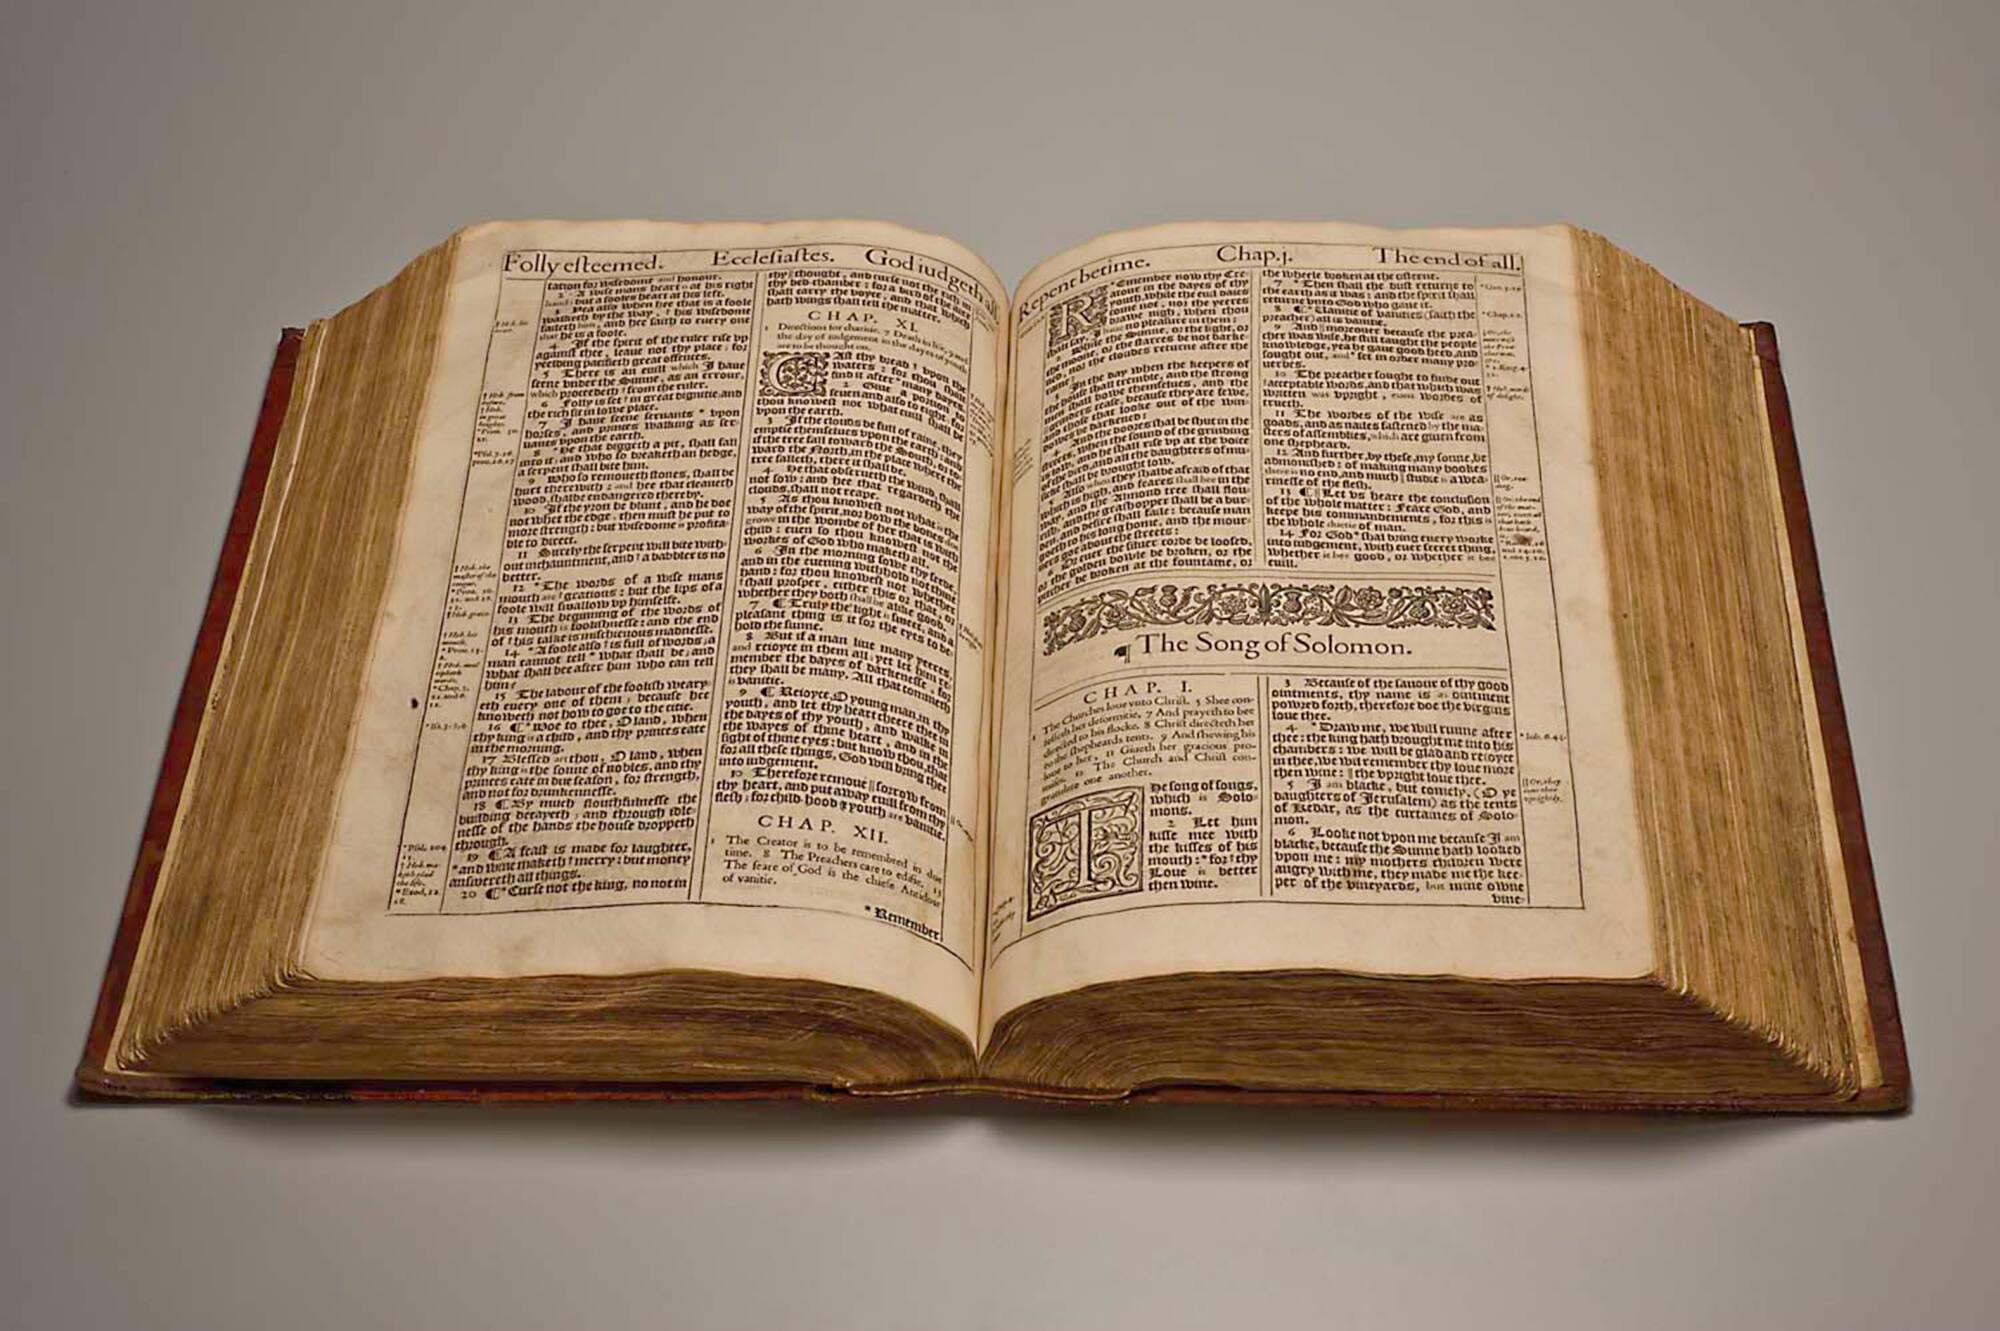 Folly esteemed. Ecclesiastes. God iudgeth all.
tation for wisedome and honour.
2 A wise mans heart is at his right
hand: but a fooles heart at his left.
3 Yea also when hee that is a foole
walketh by the way, † his wisedome
faileth him, and hee saith to euery one
that he is a foole.
4 If the spirit of the ruler rise vp
against thee, leaue not thy place; for
yeelding pacifieth great offences.
5 There is an euill which I haue
seene vnder the Sunne, as an errour,
which proceedeth † from the ruler.
6 Folly is set † in great dignitie, and
the rich sit in lowe place.
7 I haue seene seruants * vpon
horses, and princes walking as ser-
uants vpon the earth.
8 * He that diggeth a pit, shall fall
into it; and who so breaketh an hedge,
a serpent shall bite him.
9 Who so remoueth stones, shall be
hurt therewith: and hee that cleaueth
wood, shalbe endangered thereby.
10 If the yron be blunt, and he doe
not whet the edge, then must he put to
more strength: but wisedome is profita-
ble to direct.
11 Surely the serpent will bite with-
out inchauntment, and † a babbler is no
better.
12 * The words of a wise mans
mouth are † gratious: but the lips of a
foole will swallow vp himselfe.
13 The beginning of the words of
his mouth is foolishnesse: and the end
of † his talke is mischieuous madnesse.
14 * A foole also † is full of words; a
man cannot tell * what shall be; and
what shall bee after him who can tell
him?
15 The labour of the foolish weary-
eth euery one of them; because hee
knoweth not how to goe to the citie.
16 ¶ * Woe to thee, O land, when
thy king is a child, and thy princes eate
in the morning.
17 Blessed art thou, O land, when
thy king is the sonne of nobles, and thy
princes eate in due season, for strength,
and not for drunkennesse.
18 ¶ By much slouthfulnesse the
building decayeth; and through idle-
nesse of the hands the house droppeth
through.
19 ¶ A feast is made for laughter,
* and wine maketh † merry: but money
answereth all things.
20 ¶ * Curse not the king, no not in
thy thought, and curse not the rich in
thy bed-chamber: for a bird of the aire
shall carry the voyce, and that which
hath wings shall tell the matter.
CHAP. XI.
1 Directions for charitie. 7 Death in life, 9 and
the day of iudgement in the dayes of youth
are to be thought on.
CAst thy bread † vpon the
waters: for thou shalt
find it after * many dayes.
2 Giue a portion to
seuen and also to eight; for
thou knowest not what euill shall be
vpon the earth.
3 If the clouds be full of raine, they
emptie themselues vpon the earth: and
if the tree fall toward the South, or to-
ward the North, in the place where the
tree falleth, there it shall be.
4 He that obserueth the wind, shall
not sow: and hee that regardeth the
clouds, shall not reape.
5 As thou knowest not what is the
way of the spirit, nor how the bones doe
growe in the wombe of her that is with
child: euen so thou knowest not the
workes of God who maketh all.
6 In the morning sowe thy seede,
and in the euening withhold not thine
hand: for thou knowest not whether
† shall prosper, either this or that, or
whether they both shall be alike good.
7 ¶ Truly the light is sweet, and a
pleasant thing is it for the eyes to be-
hold the sunne.
8 But if a man liue many yeeres,
and reioyce in them all; yet let him re-
member the dayes of darkenesse, for
they shall be many. All that commeth
is vanitie.
9 ¶ Reioyce, O young man, in thy
youth, and let thy heart cheere thee in
the dayes of thy youth, and walke in
the wayes of thine heart, and in the
sight of thine eyes: but know thou, that
for all these things, God will bring thee
into iudgement.
10 Therefore remoue || sorrow from
thy heart, and put away euill from thy
flesh; for child-hood & youth are vanitie.
CHAP. XII.
1 The Creator is to be remembred in due
time. 8 The Preachers care to edifie. 13
The feare of God is the chiefe Antidote
of vanitie.
* Remember
Repent betime. Chap.j. The end of all.
REmember now thy Cre-
atour in the dayes of thy
youth, while the euil daies
come not, nor the yeeres
drawe nigh, when thou
shalt say, I haue no pleasure in them:
While the Sunne, or the light, or
the moone, or the starres be not darke-
ned, nor the cloudes returne after the
raine:
In the day when the keepers of
the house shall tremble, and the strong
men shall bowe themselues, and the
grinders cease, because they are fewe,
and those that looke out of the win-
dowes be darkened:
And the doores shal be shut in the
streets, when the sound of the grinding
is low, and he shall rise vp at the voice
of the bird, and all the daughters of mu-
sicke shall be brought low.
Also when they shalbe afraid of that
which is high, and feares shall bee in the
way, and the Almond tree shall flou-
rish, and the grashopper shall be a bur-
den, and desire shall faile: because man
goeth to his long home, and the mour-
ners goe about the streets:
6 Or euer the siluer corde be loosed,
or the golden bowle be broken, or the
pitcher be broken at the fountaine, or
the wheele broken at the cisterne.
7 * Then shall the dust returne to
the earth as it was: and the spirit shall
returne vnto God who gaue it.
8 ¶ * Vanitie of vanities (saith the
preacher) all is vanitie.
9 And || moreouer because the prea-
cher was wise, he still taught the people
knowledge, yea he gaue good heed, and
sought out, and * set in order many pro-
uerbes.
10 The preacher sought to finde out
† acceptable words, and that which was
written was vpright, euen wordes of
trueth.
11 The wordes of the wise are as
goads, and as nailes fastened by the ma-
sters of assemblies, which are giuen from
one shepheard.
12 And further, by these, my sonne, be
admonished: of making many bookes
there is no end, and much || studie is a wea-
rinesse of the flesh.
13 ¶ || Let vs heare the conclusion
of the whole matter: Feare God, and
keepe his commandements, for this is
the whole duetie of man.
14 For God * shal bring euery worke
into iudgement, with euery secret thing,
whether it bee good, or whether it bee
euill.
¶ The Song of Solomon.
CHAP. I.
1 The Churches loue vnto Christ. 5 Shee con-
fesseth her deformitie, 7 And prayeth to bee
directed to his flocke. 8 Christ directeth her
to the shepheards tents. 9 And shewing his
loue to her, 11 Giueth her gracious pro-
mises. 12 The Church and Christ con-
gratulate one another.
THe song of songs,
which is Solo-
mons.
2 Let him
kisse mee with
the kisses of his
mouth: * for † thy
Loue is better
then wine.
3 Because of the sauour of thy good
ointments, thy name is as ointment
powred forth, therefore doe the virgins
loue thee.
4 * Draw me, we will runne after
thee: the king hath brought me into his
chambers: we will be glad and reioyce
in thee, we wil remember thy loue more
then wine: || the vpright loue thee.
5 I am blacke, but comely, (O ye
daughters of Ierusalem) as the tents
of Kedar, as the curtaines of Solo-
mon.
6 Looke not vpon me because I am
blacke, because the Sunne hath looked
vpon me: my mothers children were
angry with me, they made me the kee-
per of the vineyards, but mine owne
vine-